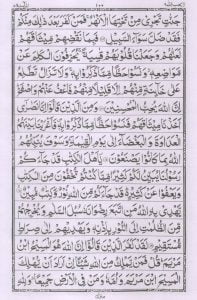 ١٠٠
جَنّٰتٍ تَجْرِيْ مِنْ تَحْتِهَا الْاَنْهٰرُ فَمَنْ كَفَرَ بَعْدَ ذٰلِكَ مِنْكُمْ
فَقَدْ ضَلَّ سَوَآءَ السَّبِيْلِ فَبِمَا نَقْضِهِمْ مِّيْثَاقَهُمْ
لَعَنّٰهُمْ وَجَعَلْنَا قُلُوْبَهُمْ قٰسِيَةً يُحَرِّفُوْنَ الْكَلِمَ عَنْ
مَّوَاضِعِهٖ وَنَسُوْا حَظًّا مِّمَّا ذُكِّرُوْا بِهٖ وَلَا تَزَالُ تَطَّلِعُ
عَلٰى خَآئِنَةٍ مِّنْهُمْ اِلَّا قَلِيْلًا مِّنْهُمْ فَاعْفُ عَنْهُمْ وَاصْفَحْ اِنَّ
اللّٰهَ يُحِبُّ الْمُحْسِنِيْنَ وَمِنَ الَّذِيْنَ قَالُوْٓا اِنَّا نَصٰرٰٓى
اَخَذْنَا مِيْثَاقَهُمْ فَنَسُوْا حَظًّا مِّمَّا ذُكِّرُوْا بِهٖ فَاَغْرَيْنَا بَيْنَهُمُ
الْعَدَاوَةَ وَالْبَغْضَآءَ اِلٰى يَوْمِ الْقِيٰمَةِ وَسَوْفَ يُنَبِّئُهُمُ
اللّٰهُ بِمَا كَانُوْا يَصْنَعُوْنَ يٰٓاَهْلَ الْكِتٰبِ قَدْ جَآءَكُمْ
رَسُوْلُنَا يُبَيِّنُ لَكُمْ كَثِيْرًا مِّمَّا كُنْتُمْ تُخْفُوْنَ مِنَ الْكِتٰبِ
وَيَعْفُوْا عَنْ كَثِيْرٍ قَدْ جَآءَكُمْ مِّنَ اللّٰهِ نُوْرٌ وَّكِتٰبٌ مُّبِيْنٌ
يَّهْدِيْ بِهِ اللّٰهُ مَنِ اتَّبَعَ رِضْوَانَهٗ سُبُلَ السَّلٰمِ وَيُخْرِجُهُمْ
مِّنَ الظُّلُمٰتِ اِلَى النُّوْرِ بِاِذْنِهٖ وَيَهْدِيْهِمْ اِلٰى صِرَاطٍ
مُّسْتَقِيْمٍ لَقَدْ كَفَرَ الَّذِيْنَ قَالُوْٓا اِنَّ اللّٰهَ هُوَ الْمَسِيْحُ ابْنُ
مَرْيَمَ قُلْ فَمَنْ يَّمْلِكُ مِنَ اللّٰهِ شَيْئًا اِنْ اَرَادَ اَنْ يُّهْلِكَ
الْمَسِيْحَ ابْنَ مَرْيَمَ وَاُمَّهٗ وَمَنْ فِي الْاَرْضِ جَمِيْعًا وَلِلّٰهِ